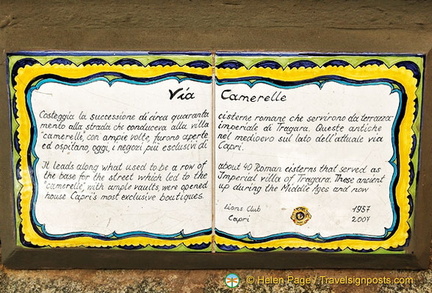 Via Camerelle
Costeggia la successione di circa quaranta cisterne romane che servirono da terrazza-
mento alla strada che conduceva alla villa imperiale di Tragara. Queste antiche
"camerelle", con ampie volte, furono aperte nel medioevo sul lato dell'attuale via
ed ospitano, oggi, i negozi più esclusivi di Capri.
It leads along what used to be a row of about 40 Roman cisterns that served as
the base for the street which led to the Imperial villa of Tragara. These ancient
"camerelle", with ample vaults, were opened up during the Middle Ages and now
house Capri's most exclusive boutiques.
Lions Club 1987
Capri 2007
© Helen Page / Travelsignposts.com